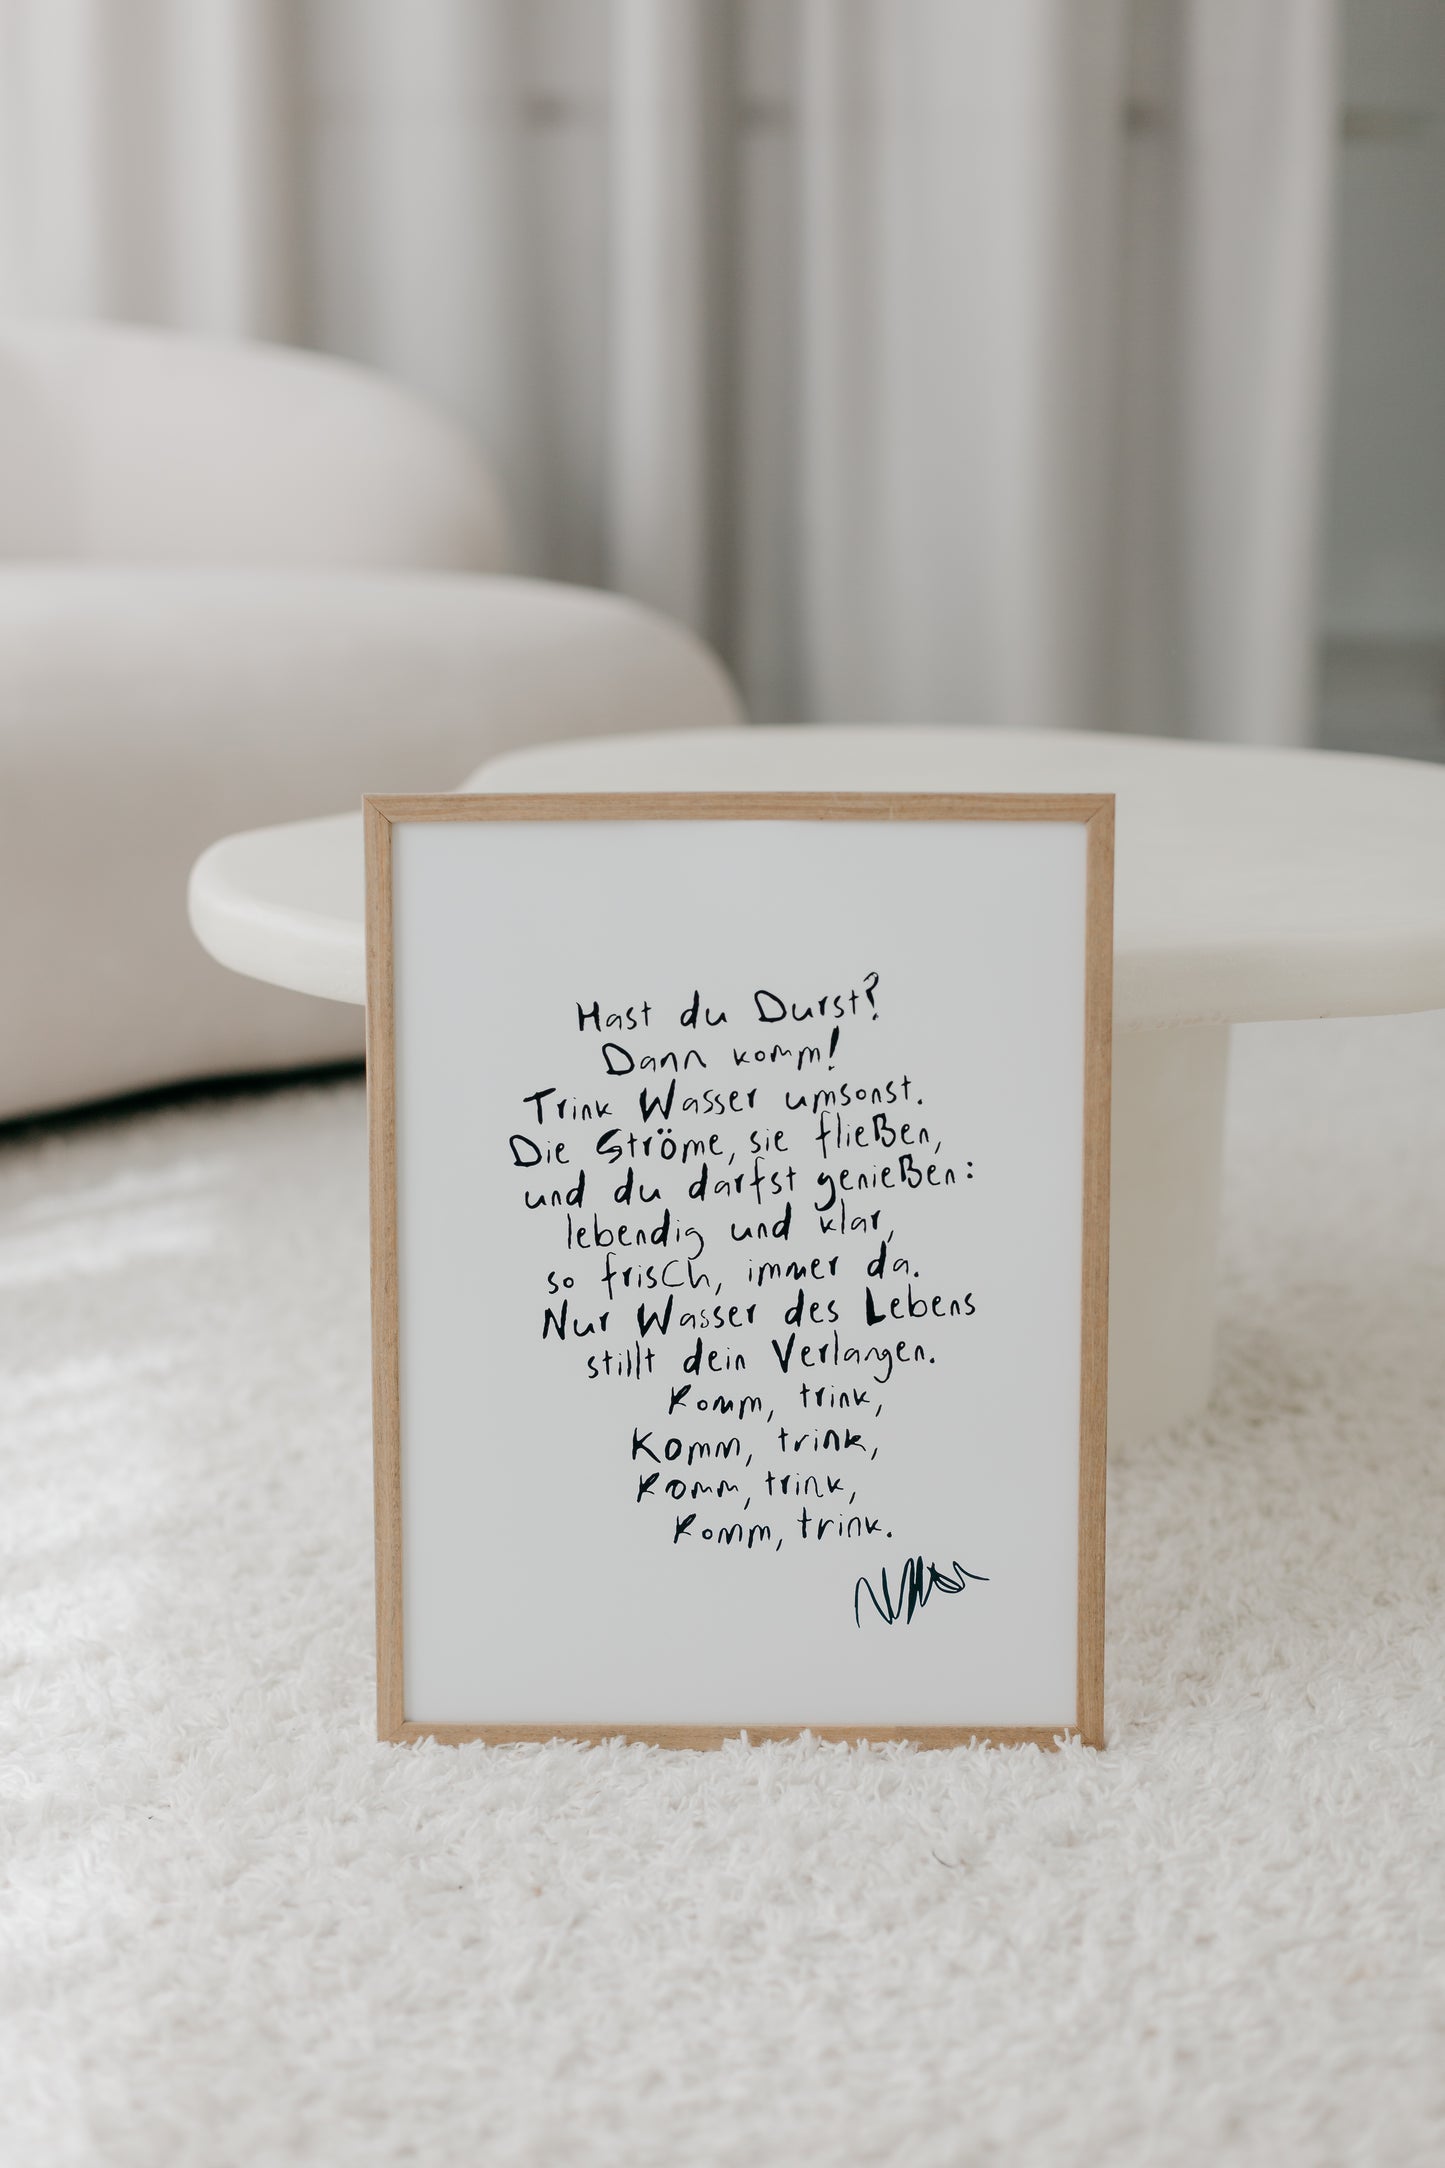 Hast du Durst?
Dann komm!
Trink Wasser umsonst.
Die Ströme, sie fließen,
und du darfst genießen:
lebendig und klar,
so frisch, immer da.
Nur Wasser des Lebens
stillt dein Verlangen.
Komm, trink,
Komm, trink,
Komm, trink,
Komm, trink.